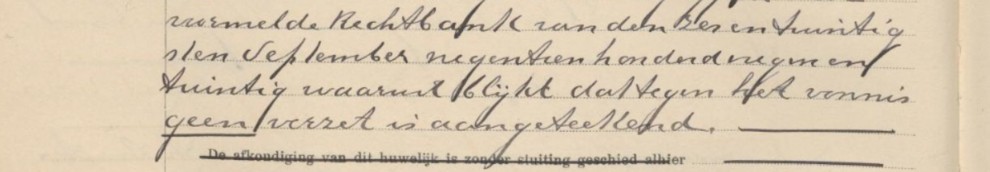 vormelde Rechtbank van den zes en twintig
sten September negentien honderd negen en
twintig waaruit blijkt dat tegen het vonnis
geen verzet is aangeteekend.
De afkondiging van dit huwelijk is zonder stuiting geschied alhier